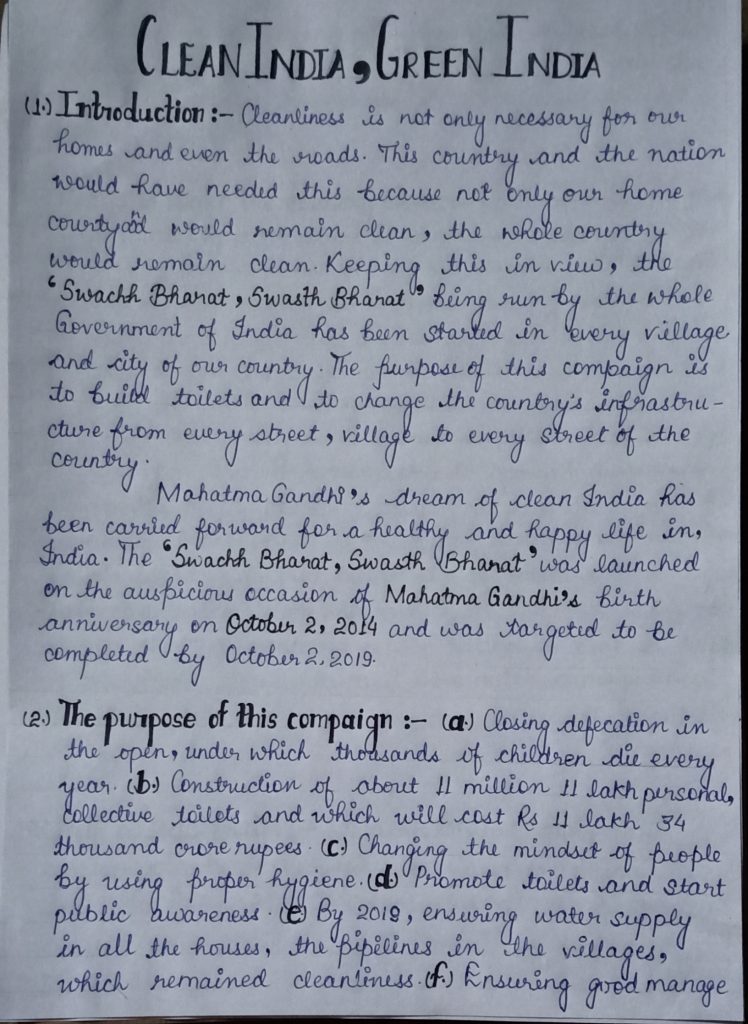 CLEAN INDIA, GREEN INDIA
(1.) Introduction :- Cleanliness is not only necessary for our
homes and even the roads. This country and the nation
would have needed this because not only our home
courtyard would remain clean, the whole country
would remain clean. Keeping this in view, the
'Swachh Bharat, Swasth Bharat' being run by the whole
Government of India has been started in every village
and city of our country. The purpose of this compaign is
to build toilets and to change the country's infrastru-
cture from every street, village to every street of the
country.
Mahatma Gandhi's dream of clean India has
been carried forward for a healthy and happy life in,
India. The 'Swachh Bharat, Swasth Bharat' was launched
on the auspicious occasion of Mahatma Gandhi's birth
anniversary on October 2, 2014 and was targeted to be
completed by October 2, 2019.
(2.) The purpose of this compaign :- (a.) Closing defecation in
the open, under which thousands of children die every
year. (b.) Construction of about 11 million 11 lakh personal,
collective toilets and which will cost Rs 11 lakh 34
thousand crore rupees. (c.) Changing the mindset of people
by using proper hygiene. (d.) Promote toilets and start
public awareness. (e) By 2019, ensuring water supply
in all the houses, the pipilines in the villages,
which remained cleanliness. (f.) Ensuring good manage